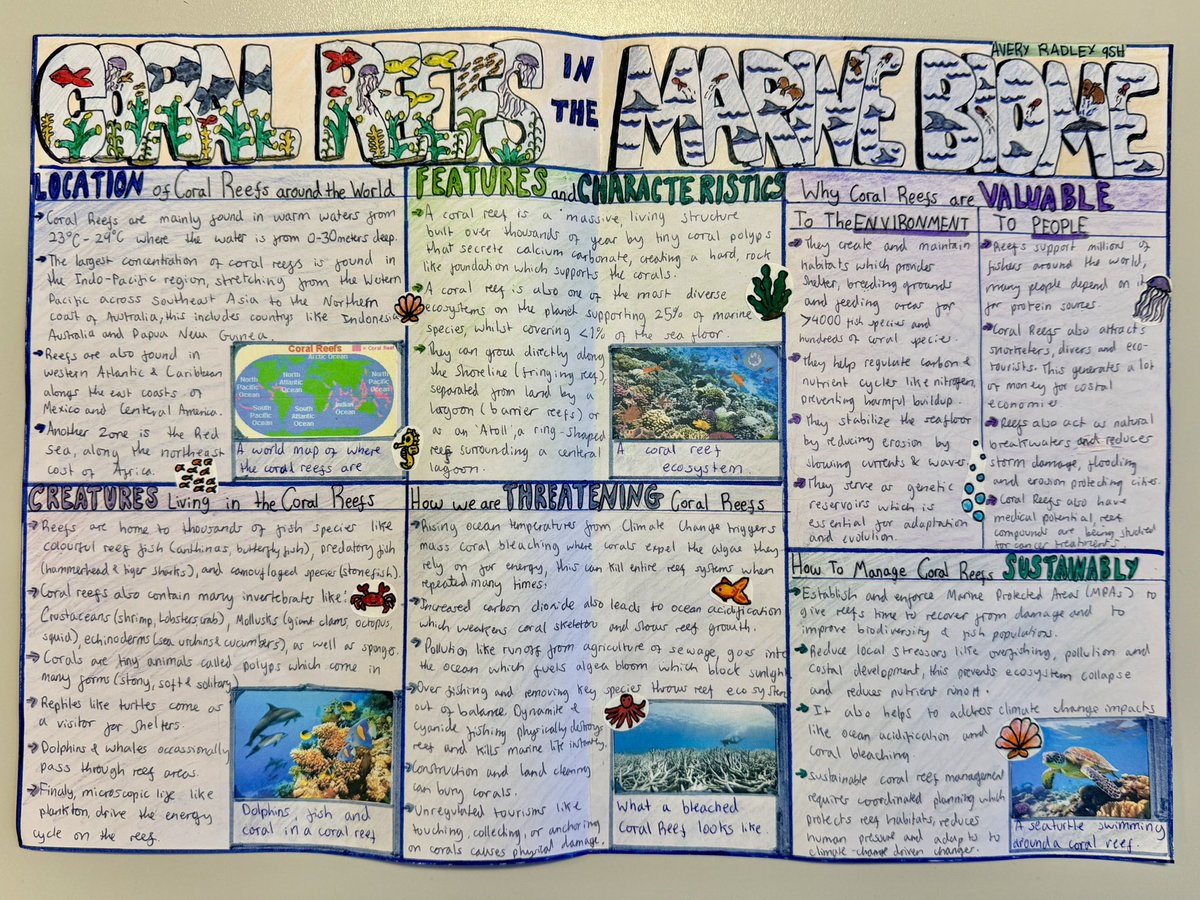 AVERY RADLEY 9SH
CORAL REEFS IN THE MARINE BIOME
LOCATION of Coral Reefs around the World
Coral Reefs are mainly found in warm waters from
23°C - 29°C where the water is from 0-30meters deep.
The largest concentration of coral reefs is found in
the Indo-Pacific region, stretching from the Western
Pacific across southeast Asia to the Northern
coast of Australia, this includes countys like Indonesia
Australia and Papua New Guinea.
Reefs are also found in
western Atlantic & Caribbean
alongs the east coasts of
Mexico and Centeral America.
Another Zone is the Red
sea, along the northeast
coast of Africa.
Coral Reefs
= Coral Reef
Arctic Ocean
North Pacific Ocean
North Atlantic Ocean
North Pacific Ocean
South Pacific Ocean
South Atlantic Ocean
Indian Ocean
A world map of where
the coral reefs are
FEATURES and CHARACTERISTICS
A coral reef is a massive living structure
built over thousands of year by tiny coral polyps
that secrete calcium carbonate, creating a hard, rock
like foundation which supports the corals.
A coral reef is also one of the most diverse
ecosystems on the planet supporting 25% of marine
species, whilst covering <1% of the sea floor
They can grow directly along
the shoreline (fringing reef),
separated from land by a
lagoon (barrier reefs) or
as an 'Atoll', a ring-shaped
reef surrounding a central
lagoon.
A coral reef
ecosystem
Why Coral Reefs are VALUABLE
To The ENVIRONMENT
They create and maintain
habitats which provides
shelter, breeding grounds
and feeding areas for
>4000 fish species and
hundreds of coral species.
They help regulate carbon &
nutrient cycles like nitrogen,
preventing harmful buildup.
They stabilize the seafloor
by reducing erosion by
slowing currents & waves
They serve as genetic
reservoirs which is
essential for adaptation
and evolution.
To PEOPLE
Reefs support millions of
fishers around the world,
many people depend on it
for protein sources.
Coral Reefs also attracts
snorkelers, divers and eco-
tourists. This generates a lot
of money for costal
economies
Reefs also act as natural
breakwaters and reduces
storm damage, flooding
and erosion protecting cities.
Coral Reefs also have
medical potential, reef
compounds are being studied
for cancer treatments
CREATURES Living in the Coral Reefs
Reefs are home to thousands of fish species like
colourful reef fish (anthinas, butterfly fish), predatory fish
(hammerhead & tiger sharks), and camouflaged species (stonefish).
Coral reefs also contain many invertebrates like:
Crustaceans (shrimp, lobsters crab), Mollusks (giant clams, octopus,
squid), echinoderms (sea urchins & cucumbers), as well as sponges.
Corals are tiny animals called polyps which come in
many forms (stony, soft & solitary)
Reptiles like turtles come as
a visitor for shelters.
Dolphins & whales occassionally
pass through reef areas.
Finaly, microscopic life like
plankton, drive the energy
cycle on the reef.
Dolphins, fish and
coral in a coral reef
How we are THREATENING Coral Reefs
Rising ocean temperatures from Climate Change triggers
mass coral bleaching where corals expel the algae they
rely on for energy, this can kill entire reef systems when
repeated many times.
Increased carbon dioxide also leads to ocean acidification
which weakens coral skeleton and slows reef growth.
Pollution like runoff from agriculture of sewage, goes into
the ocean which fuels algea bloom which block sunlight
Over fishing and removing key species throws reef eco system
out of balance. Dynamite &
cyanide fishing physically destroys
reef and kills marine life instantly.
Construction and land clearing
can bury corals.
Unregulated tourisms like
touching, collecting, or anchoring
on corals causes physical damage.
What a bleached
Coral Reef looks like
How To Manage Coral Reefs SUSTAINABLY
Establish and enforce Marine Protected Areas (MPAs) to
give reefs time to recover from damage and to
improve biodiversity & fish populations.
Reduce local stressors like overfishing, pollution and
costal development, this prevents ecosystem collapse
and reduces nutrient runoff.
It also helps to address climate change impacts
like ocean acidification and
coral bleaching
sustainable coral reef management
requires coordinated planning which
protects reef habitats, reduces
human pressure and adapts to
climate-change driven changes.
A seaturtle swimming
around a coral reef.